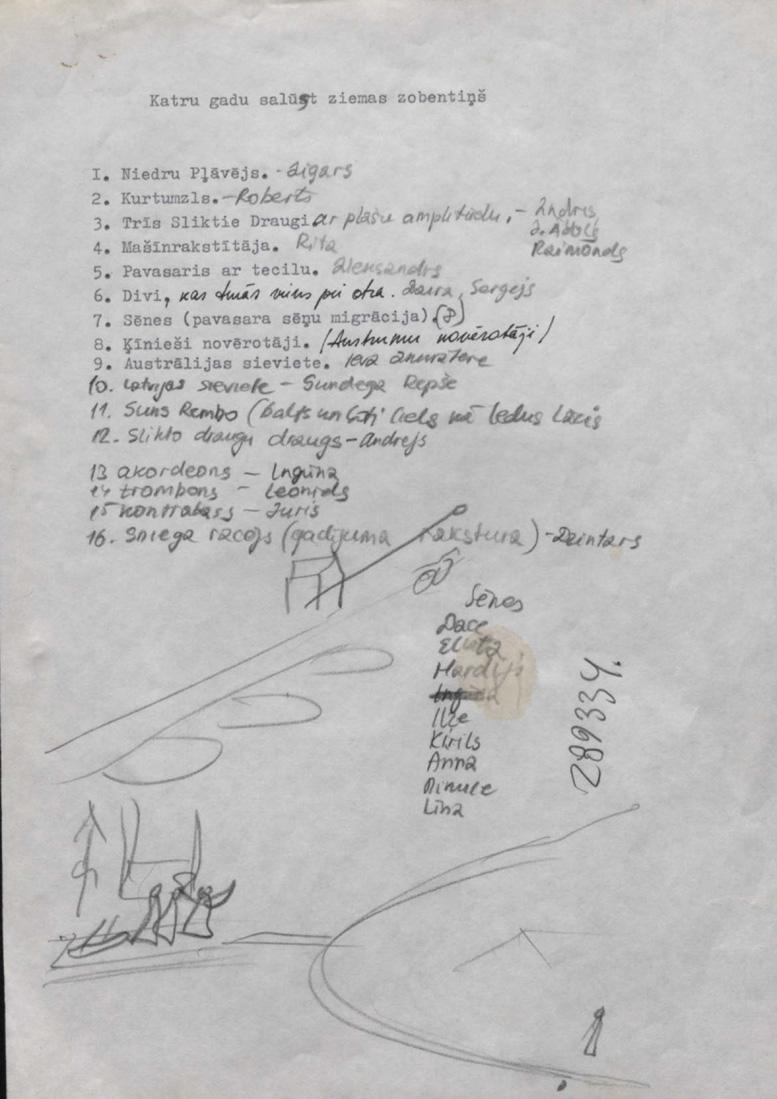 Katru gadu salūst ziemas zobentiņš
I. Niedru Pļāvējs. - Aigars
2. Kurtumzls. - Roberts
3. Trīs Sliktie Draugi ar plašu amplitūdu. - Andris
J. Abols
Raimonds
4. Mašīnrakstītāja. Rita
5. Pavasaris ar tecilu. Aleksandrs
6. Divi, kas viens pie otra. Daira, Sergejs
7. Sēnes (pavasara sēņu migrācija) (8)
8. Ķīnieši novērotāji. (Austrumu novērotāji)
9. Austrālijas sieviete. Ieva
10. Latvijas sieviete - Gundega Repše
11. Suns Rembo (balts un ļoti liels kā ledus lācis
12. Slikto draugu draugs - Andrejs
13 akordeons - Ingūna
14 trombons - Leonīds
15 kontrabass - Juris
16. Sniega racējs (gadījuma rakstura) - Dzintars
Sēnes
Dace
Elita
Hardijs
Ilze
Kirils
Anna
Līna
289334.